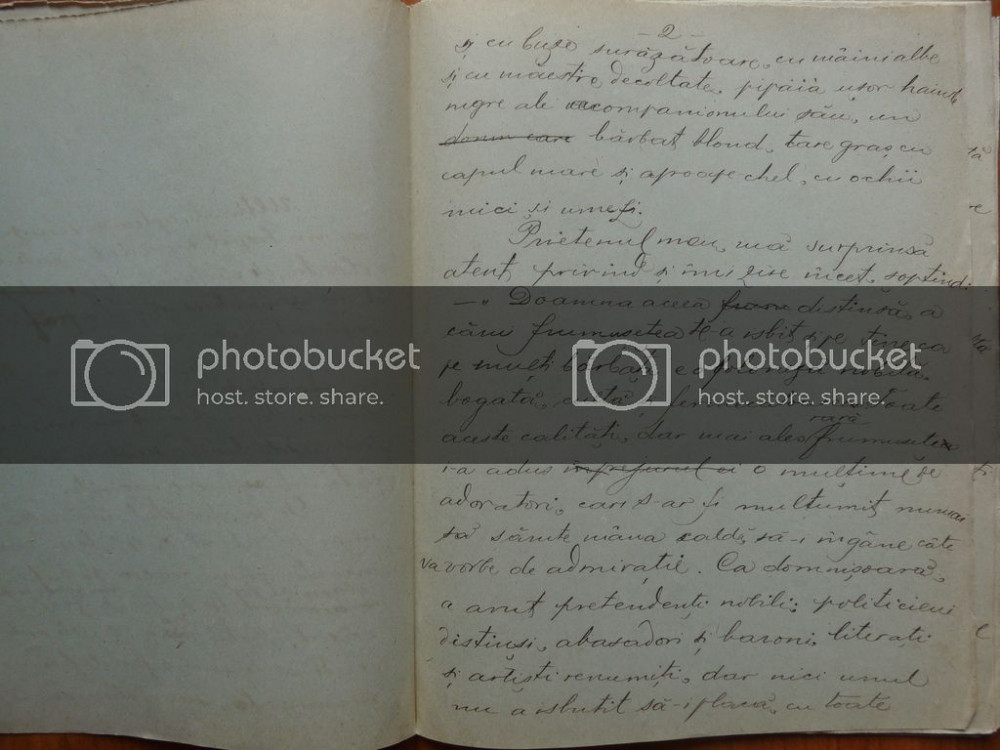 - 2 -
și cu buze surâzătoare, cu mâini albe
și cu măestrie decoltate, pipăia ușor hainele
negre ale companionului său, un
domn care bărbat blond, tare gras cu
capul mare și aproape chel, cu ochii
mici și umezi.
Prietenul meu, mă surprinsă
atent, privind și îmi zise încet, șoptind:
—„ Doamna aceea distinsă, a
cărui frumusețea te-a isbit și pe tine ca
pe mulți bărbați, e
bogată, toate
rară
aceste calități, dar mai ales frumusețea
i-a adus împrejurul ei o mulțime de
adoratori, cari s-ar fi mulțumit numai
să sărute mâna caldă, să-i îngâne câte
va vorbe de admirație. Ca domnișoară,
a avut pretendenți nobili; politicieni
distinși, abasadori și baroni, literați
și artiști renumiți, dar nici unul
nu a isbutit să-i placă, cu toate
photobucket
host. store. share.
photobucket
host. store. share.